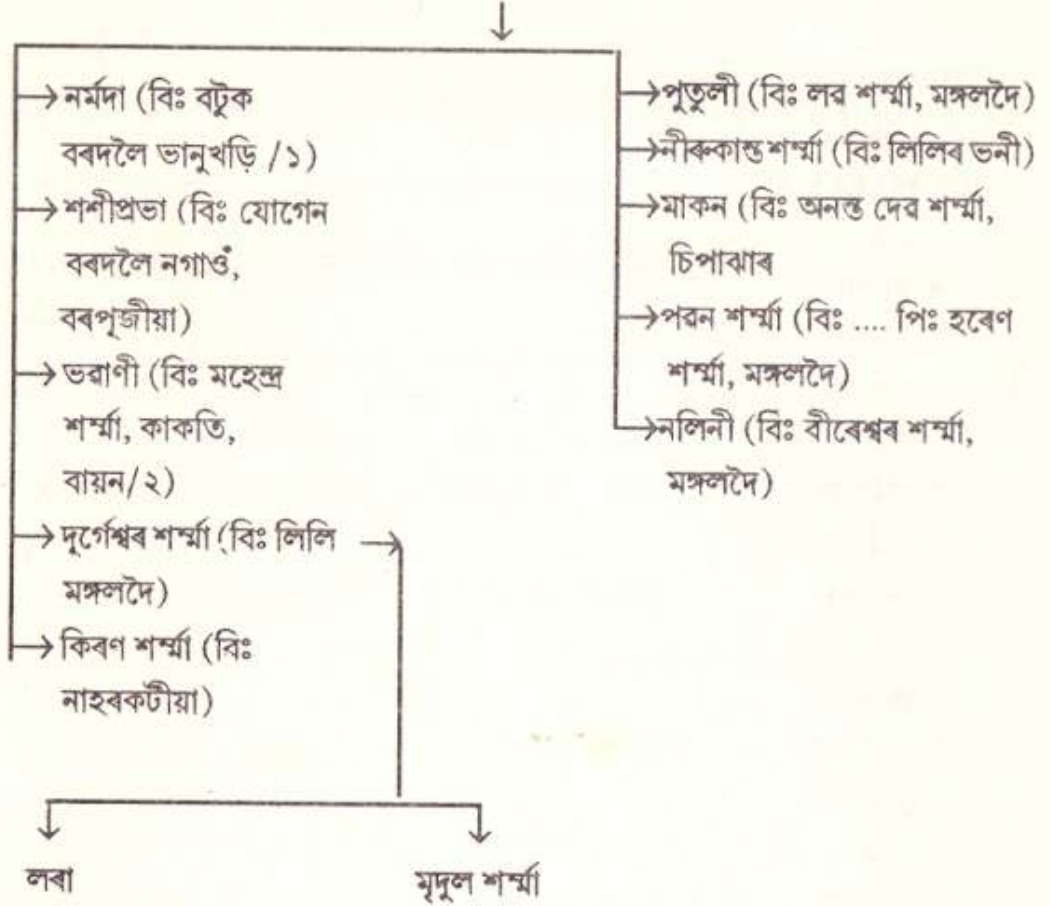 নৰ্মদা (বিঃ বটুক
বৰদলৈ ভানুখড়ি /১)
শশীপ্ৰভা (বিঃ যোগেন
বৰদলৈ নগাওঁ,
বৰপূজীয়া)
ভৱাণী (বিঃ মহেন্দ্ৰ
শৰ্ম্মা, কাকতি,
বায়ন/২)
দুৰ্গেশ্বৰ শৰ্ম্মা (বিঃ লিলি
মঙ্গলদৈ)
কিৰণ শৰ্ম্মা (বিঃ
নাহৰকটীয়া)
পুতুলী (বিঃ লৱ শৰ্ম্মা, মঙ্গলদৈ)
নীৰুকান্ত শৰ্ম্মা (বিঃ লিলিৰ ভনী)
মাকন (বিঃ অনন্ত দেৱ শৰ্ম্মা,
চিপাঝাৰ
পৱন শৰ্ম্মা (বিঃ .... পিঃ হৰেণ
শৰ্ম্মা, মঙ্গলদৈ)
নলিনী (বিঃ বীৰেশ্বৰ শৰ্ম্মা,
মঙ্গলদৈ)
লৰা
মৃদুল শৰ্ম্মা